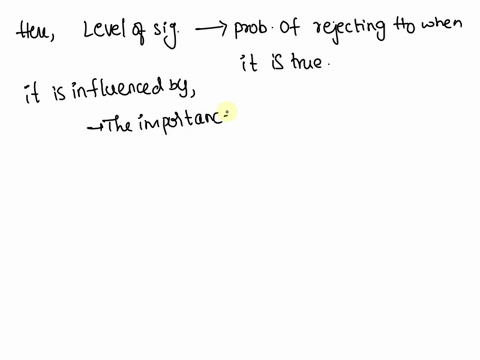 Here, Level of sig. → prob. of rejecting H0 when
it is true.
it is influenced by,
→ The importanc